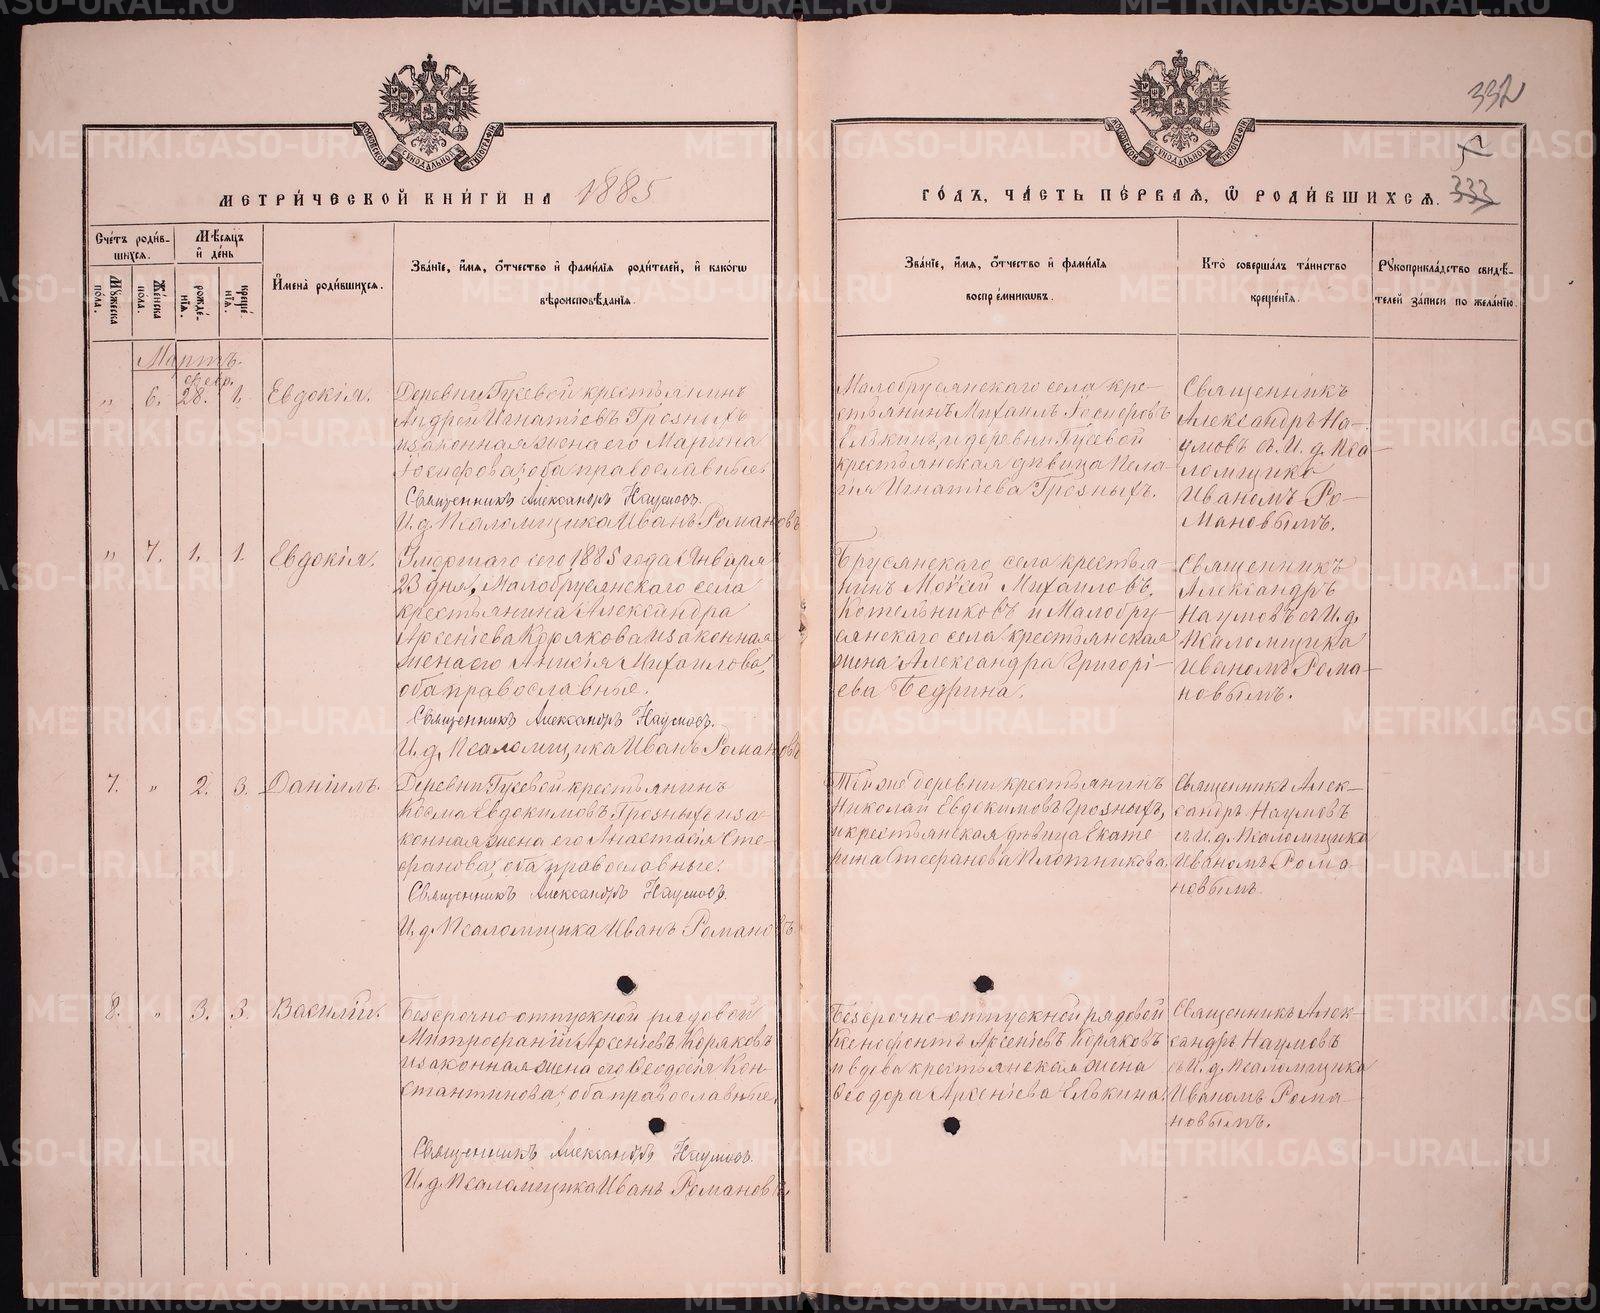 332
333
МЕТРИ́ЧЕСКОЙ КНИ́ГИ НА 1885
ГО́ДЪ, ЧА́СТЬ ПЕ́РВАЯ, Ѡ РОДИ́ВШИХСѦ.
Сче́тъ роди́в-
шихся.
Му́жеска по́ла.
Же́нска по́ла.
Мѣ́сяцъ и҆ де́нь
рожде́-
нїя.
креще́-
нїя.
И҆мена̀ роди́вшихся.
Зва́нїе, и҆́мя, ѻ҆́тчество и҆ фами́лїя роди́телей, и҆ како́гѡ
вѣроисповѣ́данїя.
Зва́нїе, и҆́мя, ѻ҆́тчество и҆ фами́лїя
воспрїе́мниковъ.
Кто̀ соверша́лъ та́инство
креще́нїя.
Рꙋкоприкла́дство свидѣ́-
телей за́писи по жела́нїю.
Мартъ.
февр.
„ 6. 28. 1. Евдокія.
Деревни Гусевой крестьянинъ
Андрей Игнатіевъ Грозныхъ
и законная жена его Марина
Іосифова, оба православные.
Священникъ Александръ Наумовъ.
И. д. Псаломщика Иванъ Романовъ
Малобрусянскаго села кре-
стьянинъ Михаилъ Іосифовъ
Елькинъ, и деревни Гусевой
крестьянская дѣвица Пела-
гія Игнатіева Грозныхъ.
Священникъ
Александръ На-
умовъ съ И. д. Пса-
ломщика
Иваномъ Ро-
мановымъ.
„ 7. 1. 1. Евдокія.
Умершаго сего 1885 года Января
23 дня, Малобрусянскаго села
крестьянина Александра
Арсеніева Корякова и законная
жена его Анисія Михаилова,
оба православные.
Священникъ Александръ Наумовъ.
И. д. Псаломщика Иванъ Романовъ
Брусянскаго села крестья-
нинъ Мойсей Михаиловъ
Котельниковъ и Малобру-
сянскаго села крестьянская
жена Александра Григорі-
ева Бедрина.
Священникъ
Александръ
Наумовъ съ И. д.
Псаломщика
Иваномъ Рома-
новымъ.
7. „ 2. 3. Даніилъ.
Деревни Гусевой крестьянинъ
Косма Евдокимовъ Грозныхъ и за-
конная жена его Анастасія Сте-
фанова, оба православные.
Священникъ Александръ Наумовъ.
И. д. Псаломщика Иванъ Романовъ
Той же деревни крестьянинъ
Николай Евдокимовъ Грозныхъ,
и крестьянская дѣвица Екате-
рина Стефанова Плотникова.
Священникъ Алек-
сандръ Наумовъ
съ И. д. Псаломщика
Иваномъ Рома-
новымъ
8. „ 3. 3. Василій.
Безсрочно-отпускной рядовой
Митрофаній Арсеніевъ Коряковъ
и законная жена его Ѳеодосія Кон-
стантинова, оба православные.
Священникъ Александръ Наумовъ.
И. д. Псаломщика Иванъ Романовъ.
Безсрочно-отпускной рядовой
Ксенофонтъ Арсеніевъ Коряковъ
и вдова крестьянская жена
Ѳеодора Арсеніева Елькина.
Священникъ Алек-
сандръ Наумовъ
съ И. д. Псаломщика
Иваномъ Рома-
новымъ.
METRIKI.GASO-URAL.RU